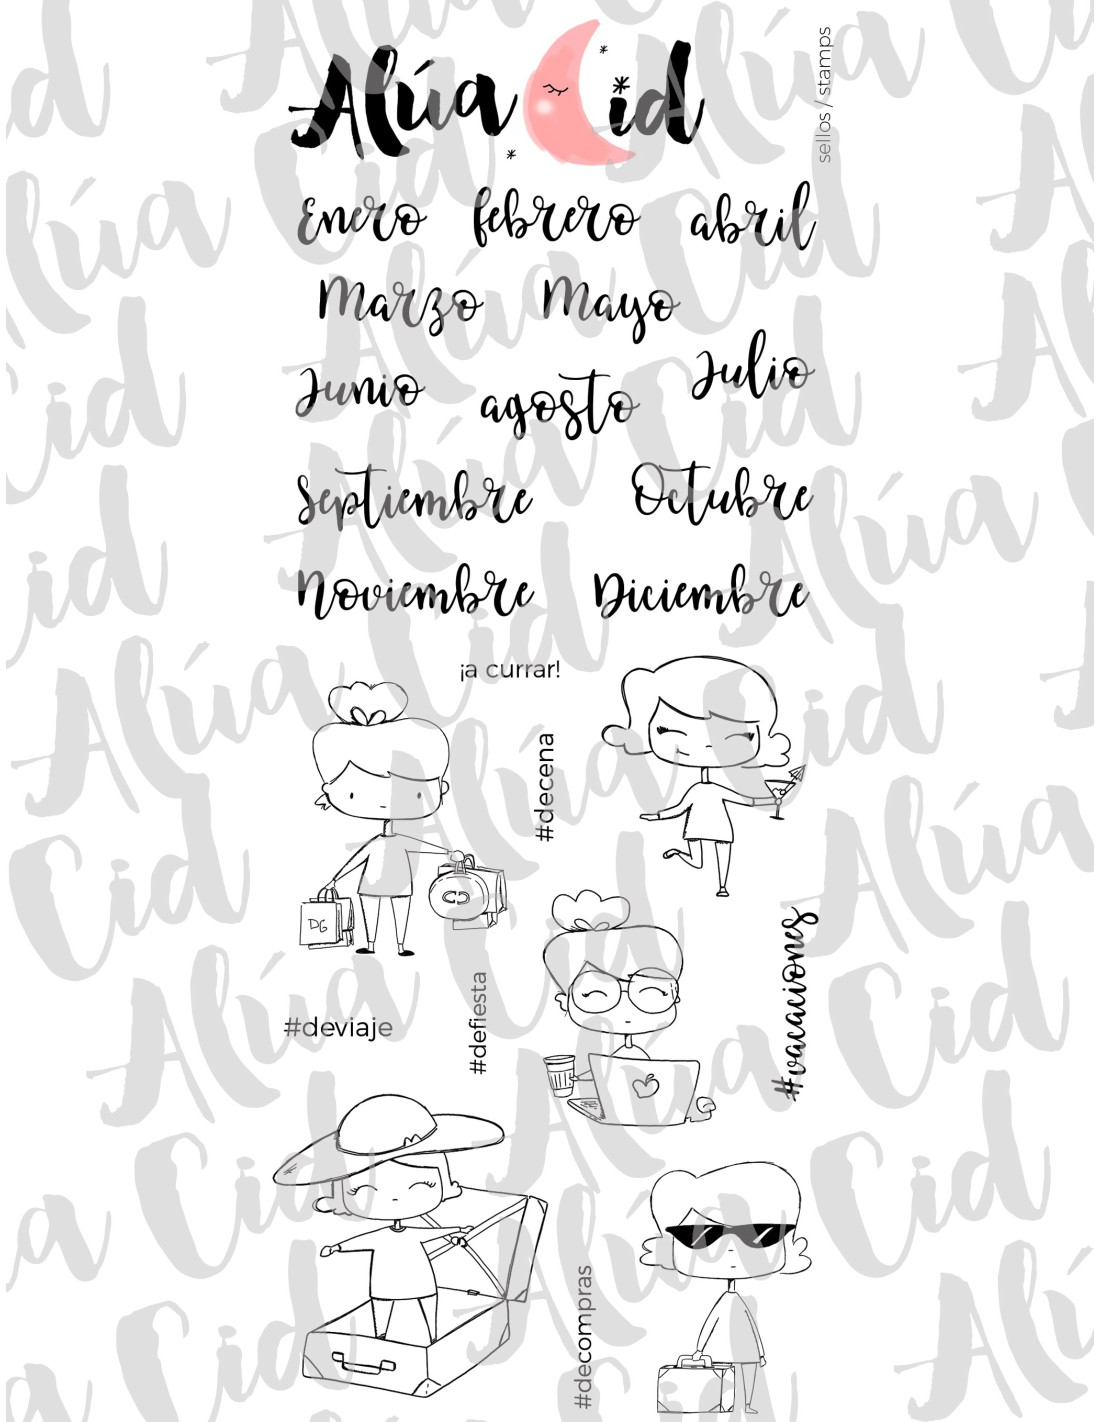 Alúa Cid
sellos / stamps
Enero febrero abril
Marzo Mayo
Junio agosto Julio
Septiembre Octubre
Noviembre Diciembre
¡a currar!
#decena
DG
#vacaciones
#deviaje
#defiesta
#decompras